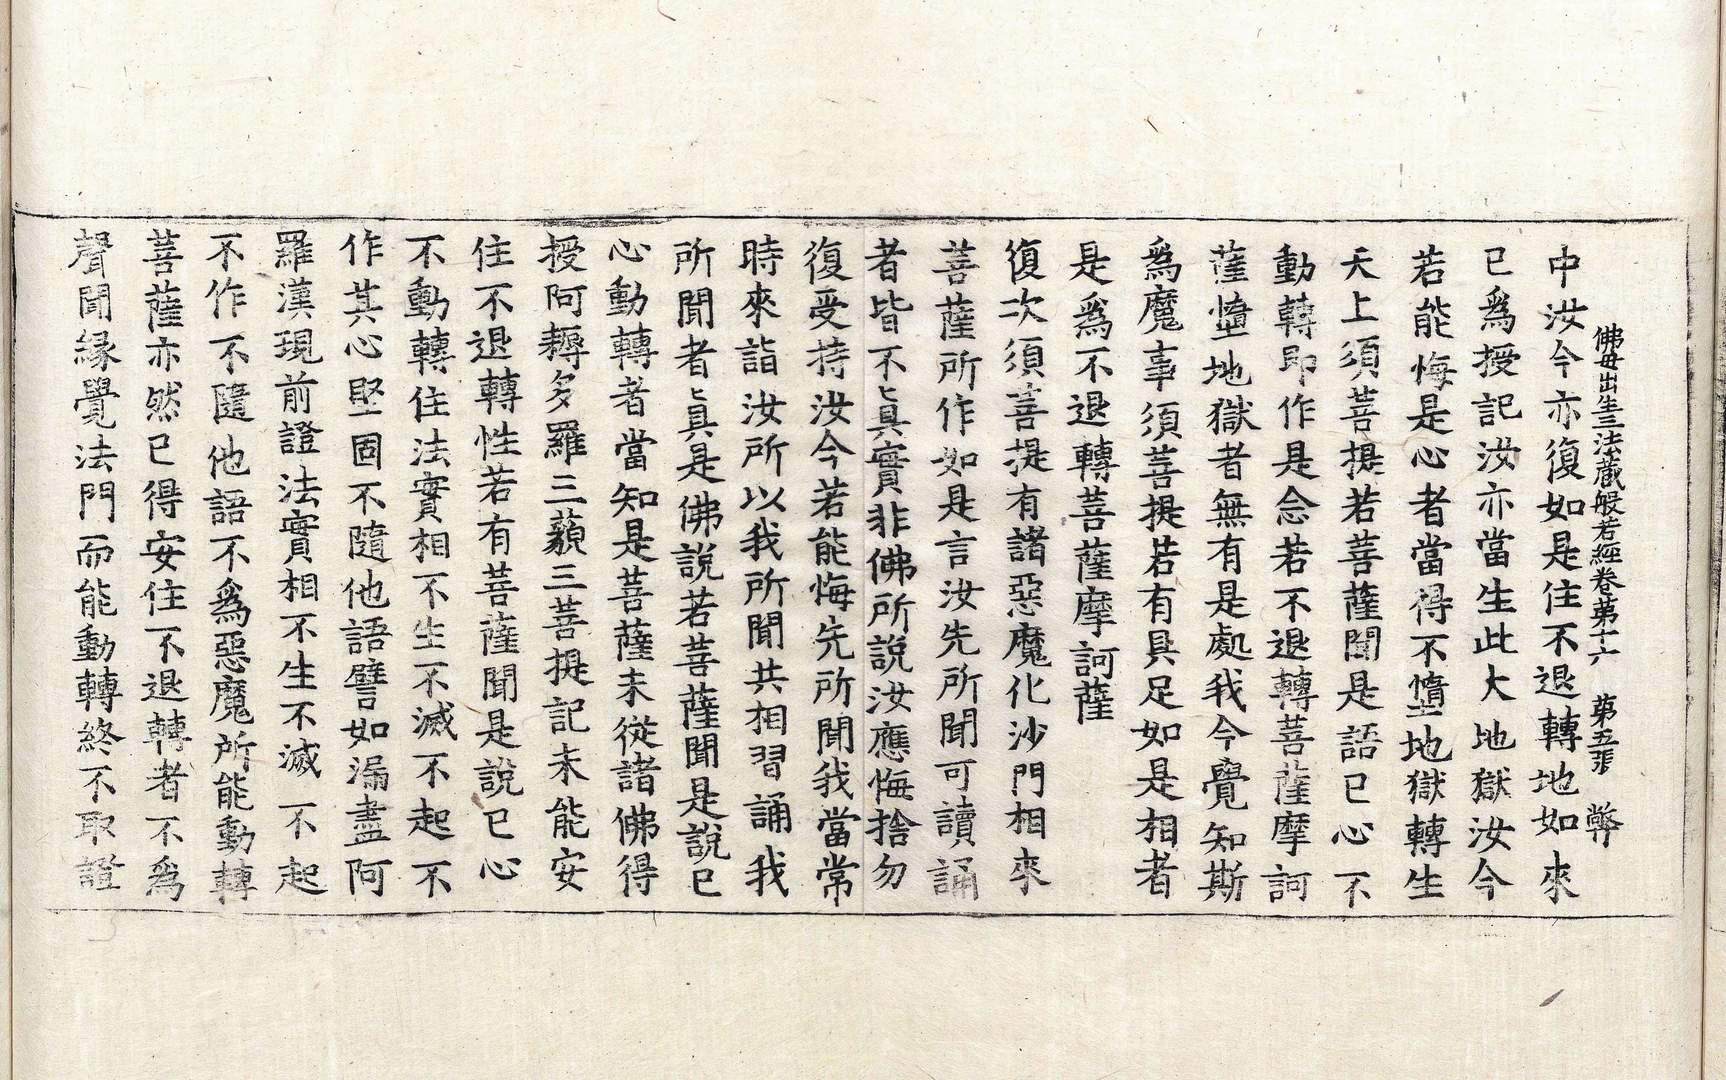 佛母出生三法蔵般若經卷第十六 第五張 弊
中汝今亦復如是住不退轉地如來
已爲授記汝亦當生此大地獄汝今
若能悔是心者當得不墮地獄轉生
天上須菩提若菩薩聞是語已心不
動轉即作是念若不退轉菩薩摩訶
薩墮地獄者無有是處我今覺知斯
爲魔事須菩提若有具足如是相者
是爲不退轉菩薩摩訶薩
復次須菩提有諸惡魔化沙門相來
菩薩所作如是言汝先所聞可讀誦
者皆不真實非佛所說汝應悔捨勿
復受持汝今若能悔先所聞我當常
時來詣汝所以我所聞共相習誦我
所聞者真是佛說若菩薩聞是說已
心動轉者當知是菩薩未從諸佛得
授阿耨多羅三藐三菩提記未能安
住不退轉性若有菩薩聞是說已心
不動轉住法實相不生不滅不起不
作其心堅固不隨他語譬如漏盡阿
羅漢現前證法實相不生不滅不起
不作不隨他語不爲惡魔所能動轉
菩薩亦然已得安住不退轉者不爲
聲聞縁覺法門而能動轉終不取證